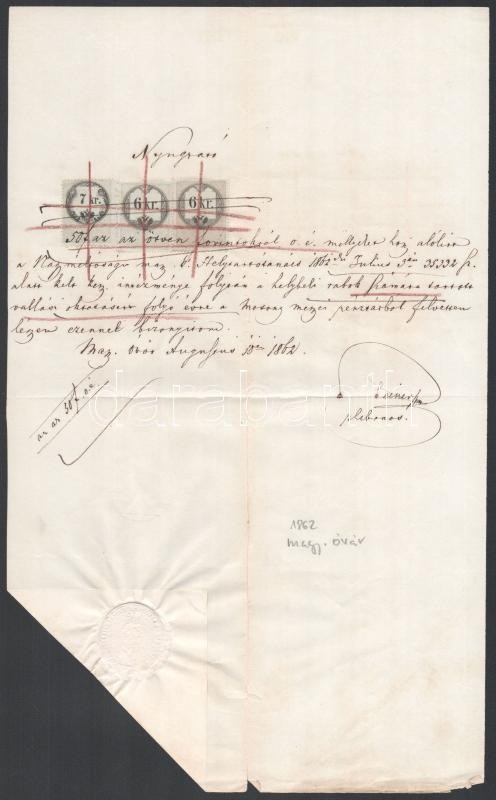 Nyugtató
7 kr. 6 kr. 6 kr.
50 f az az ötven forintokról o. é. mellyeket hoz alólirt
a Nagyméltóságu mag. k. Helytartótanács 1862 Julius 35332 sz.
alatt kelt kez. intézménye folytán a helybeli rabok számára tartott
vallási oktatásért folyó évre a mosony megyei pénztárból felvettem
legyen ezennel bizonyitom.
Mag. óvár Augustus 10 1862.
az az 50 f o. é.
plébános.
1862
Magy. óvár
darabanth